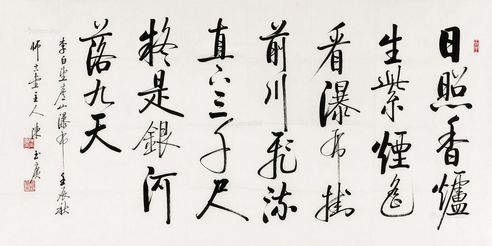 日照香爐
生紫煙遙
看瀑布掛
前川飛流
直下三千尺
疑是銀河
落九天
李白望廬山瀑布 壬辰秋
主人 陳玉廣